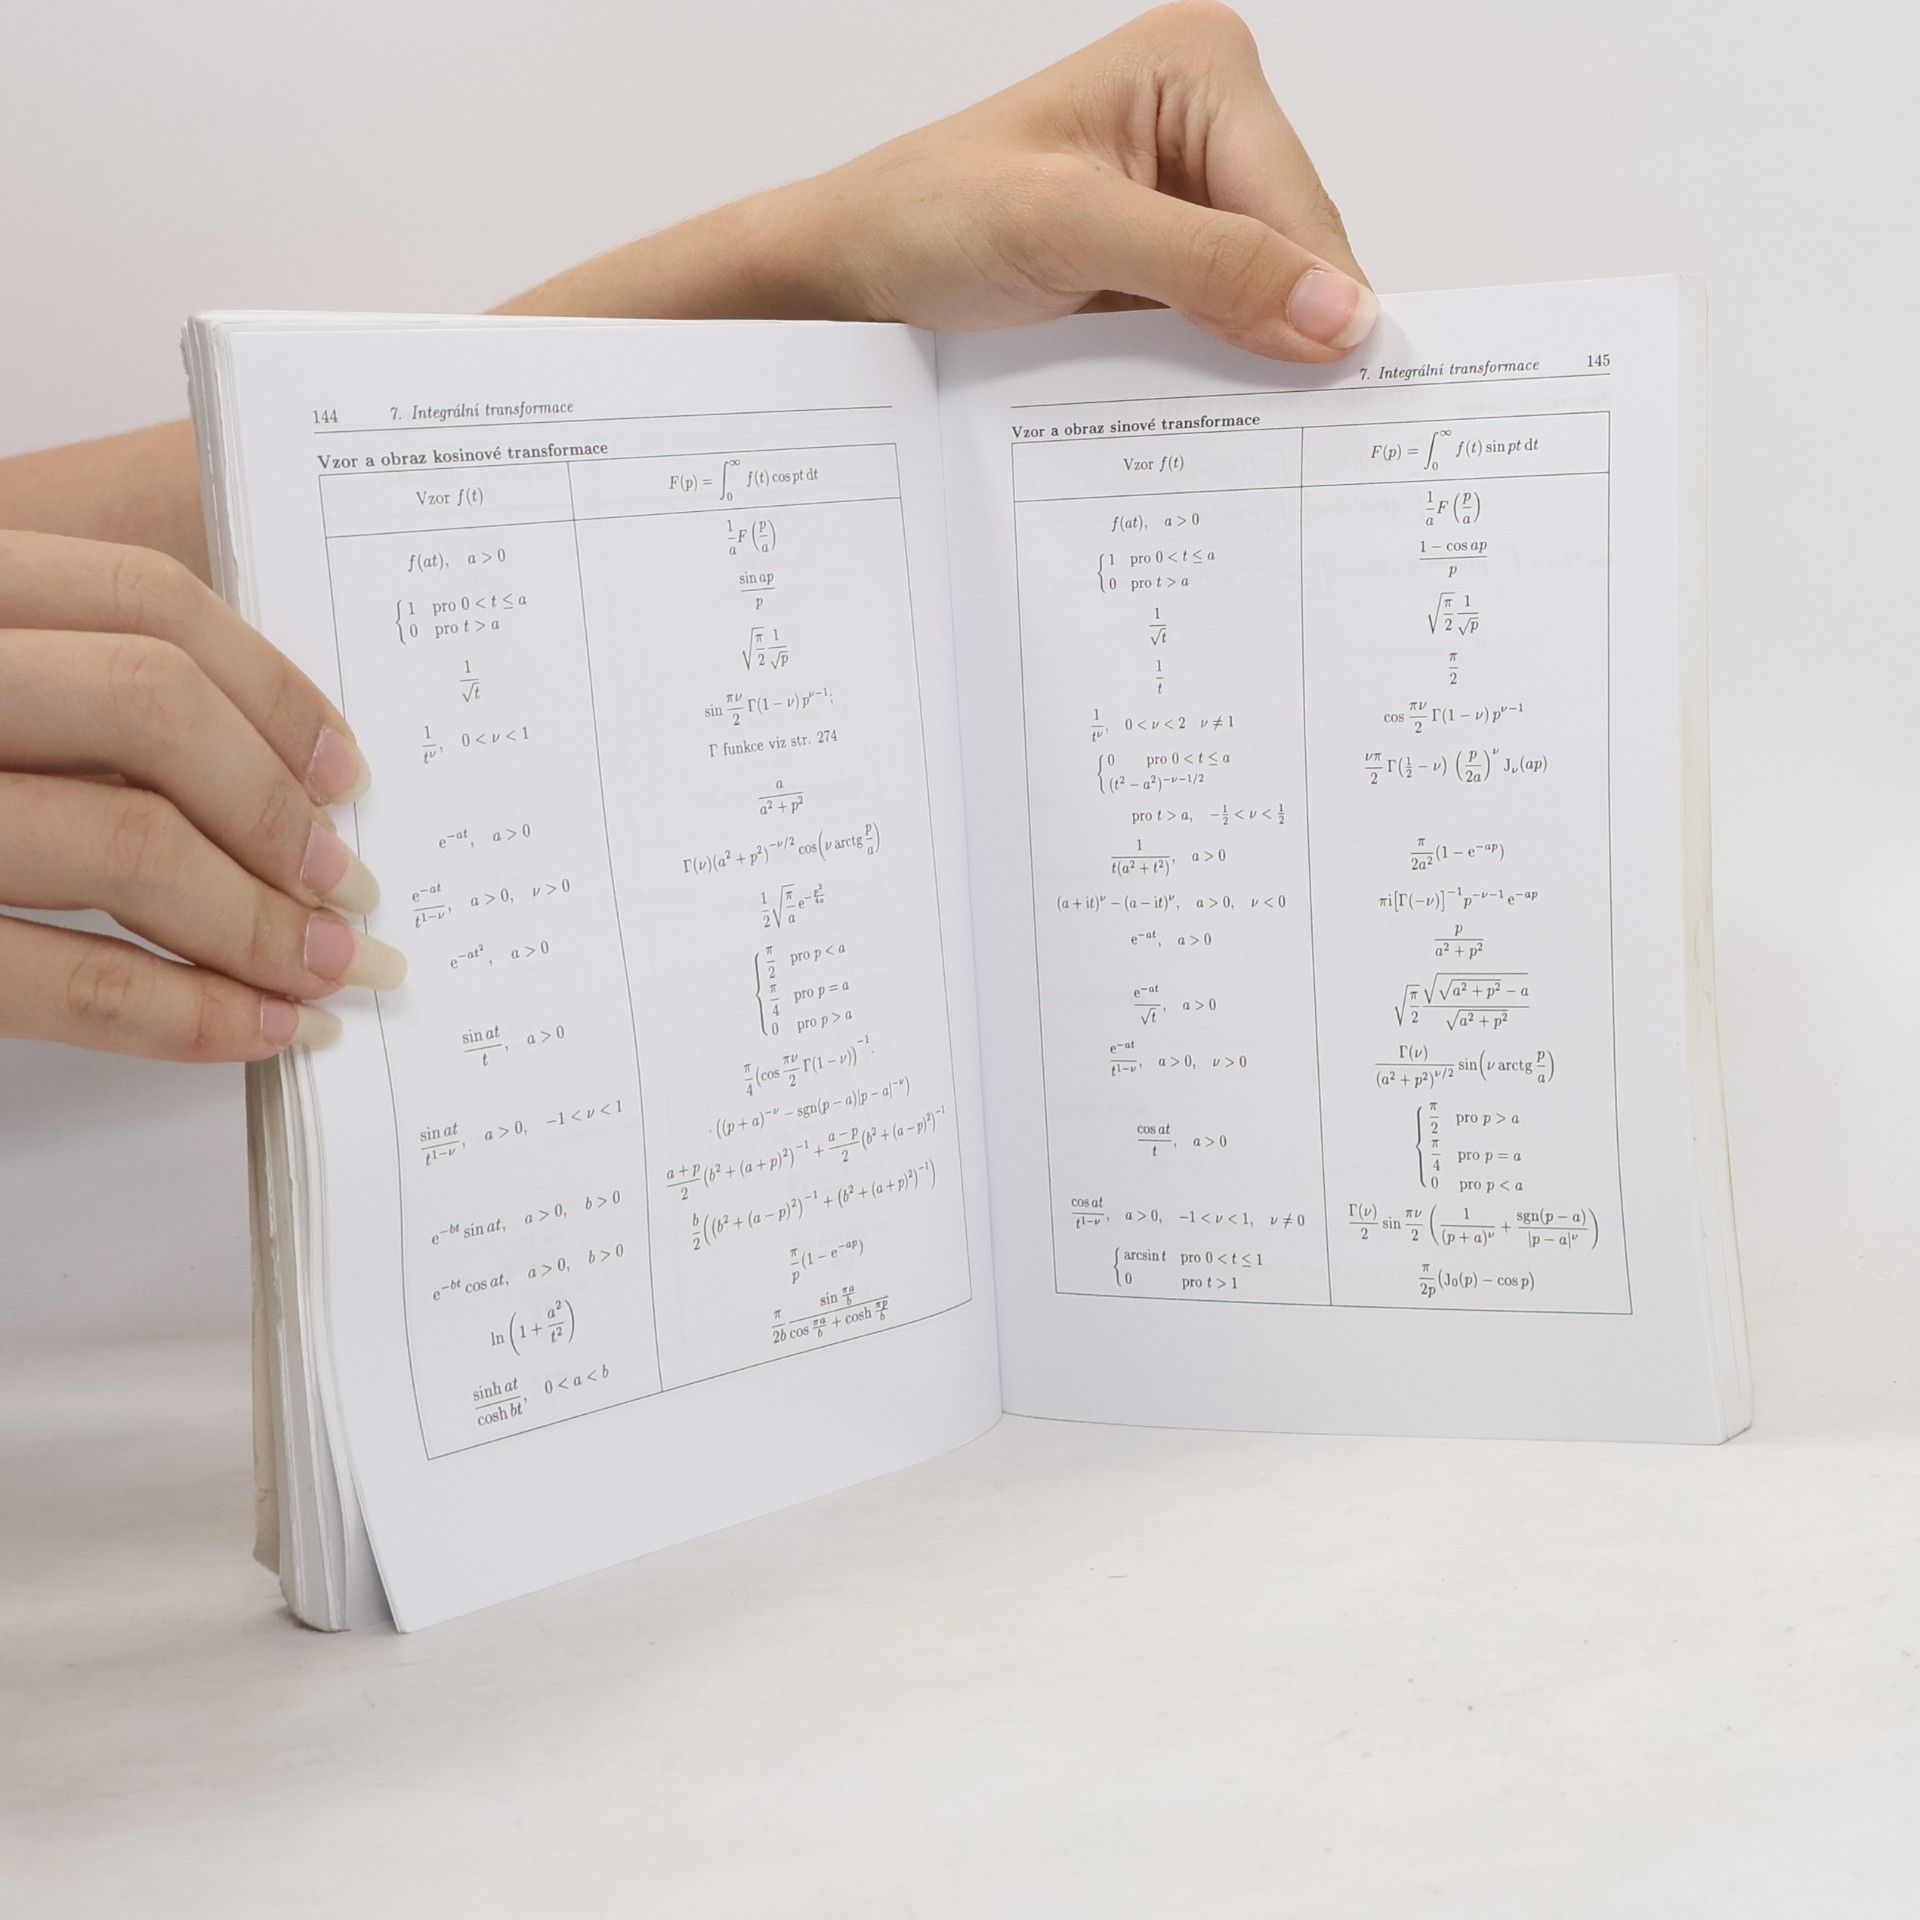 144 7. Integrální transformace
Vzor a obraz kosinové transformace
Vzor f(t) F(p) = ∫₀^∞ f(t) cos pt dt
f(at), a > 0 1/a F(p/a)
{1 pro 0 < t ≤ a sin ap / p
{0 pro t > a
1/√t √(π/2) 1/√p
1/t^ν, 0 < ν < 1 sin πν/2 Γ(1 − ν) p^(ν−1);
Γ funkce viz str. 274
e^(−at), a > 0 a/(a² + p²)
e^(−at)/t^(1−ν), a > 0, ν > 0 Γ(ν)(a² + p²)^(−ν/2) cos(ν arctg p/a)
e^(−at²), a > 0 1/2 √(π/a) e^(−p²/4a)
sin at / t, a > 0 {π/2 pro p < a
{π/4 pro p = a
{0 pro p > a
sin at / t^(1−ν), a > 0, −1 < ν < 1 π/4 (cos πν/2 Γ(1 − ν))^(−1) ·
· ((p + a)^(−ν) − sgn(p − a)|p − a|^(−ν))
e^(−bt) sin at, a > 0, b > 0 (a + p)/2 (b² + (a + p)²)^(−1) + (a − p)/2 (b² + (a − p)²)^(−1)
e^(−bt) cos at, a > 0, b > 0 b/2 ((b² + (a − p)²)^(−1) + (b² + (a + p)²)^(−1))
ln(1 + a²/t²) π/p (1 − e^(−ap))
sinh at / cosh bt, 0 < a < b π/2b sin πa/b / (cos πa/b + cosh πp/b)
7. Integrální transformace 145
Vzor a obraz sinové transformace
Vzor f(t) F(p) = ∫₀^∞ f(t) sin pt dt
f(at), a > 0 1/a F(p/a)
{1 pro 0 < t ≤ a (1 − cos ap)/p
{0 pro t > a
1/√t √(π/2) 1/√p
1/t π/2
1/t^ν, 0 < ν < 2 ν ≠ 1 cos πν/2 Γ(1 − ν) p^(ν−1)
{0 pro 0 < t ≤ a νπ/2 Γ(1/2 − ν) (p/2a)^ν J_ν(ap)
{(t² − a²)^(−ν−1/2)
pro t > a, −1/2 < ν < 1/2
1/(t(a² + t²)), a > 0 π/2a² (1 − e^(−ap))
(a + it)^ν − (a − it)^ν, a > 0, ν < 0 πi[Γ(−ν)]^(−1) p^(−ν−1) e^(−ap)
e^(−at), a > 0 p/(a² + p²)
e^(−at)/√t, a > 0 √(π/2) √(√(a² + p²) − a) / √(a² + p²)
e^(−at)/t^(1−ν), a > 0, ν > 0 Γ(ν)/(a² + p²)^(ν/2) sin(ν arctg p/a)
cos at / t, a > 0 {π/2 pro p > a
{π/4 pro p = a
{0 pro p < a
cos at / t^(1−ν), a > 0, −1 < ν < 1, ν ≠ 0 Γ(ν)/2 sin πν/2 (1/(p + a)^ν + sgn(p − a)/|p − a|^ν)
{arcsin t pro 0 < t ≤ 1 π/2p (J₀(p) − cos p)
{0 pro t > 1